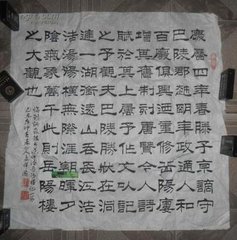 慶曆四年春滕子京謫守
巴陵郡越明年政通人和
百廢俱興乃重修岳陽樓
增其舊制刻唐賢今人詩
賦於其上屬予作文以記
之予觀夫巴陵勝狀在洞
庭一湖銜遠山吞長江浩
浩湯湯橫無際涯朝暉夕
陰氣象萬千此則岳陽樓
之大觀也